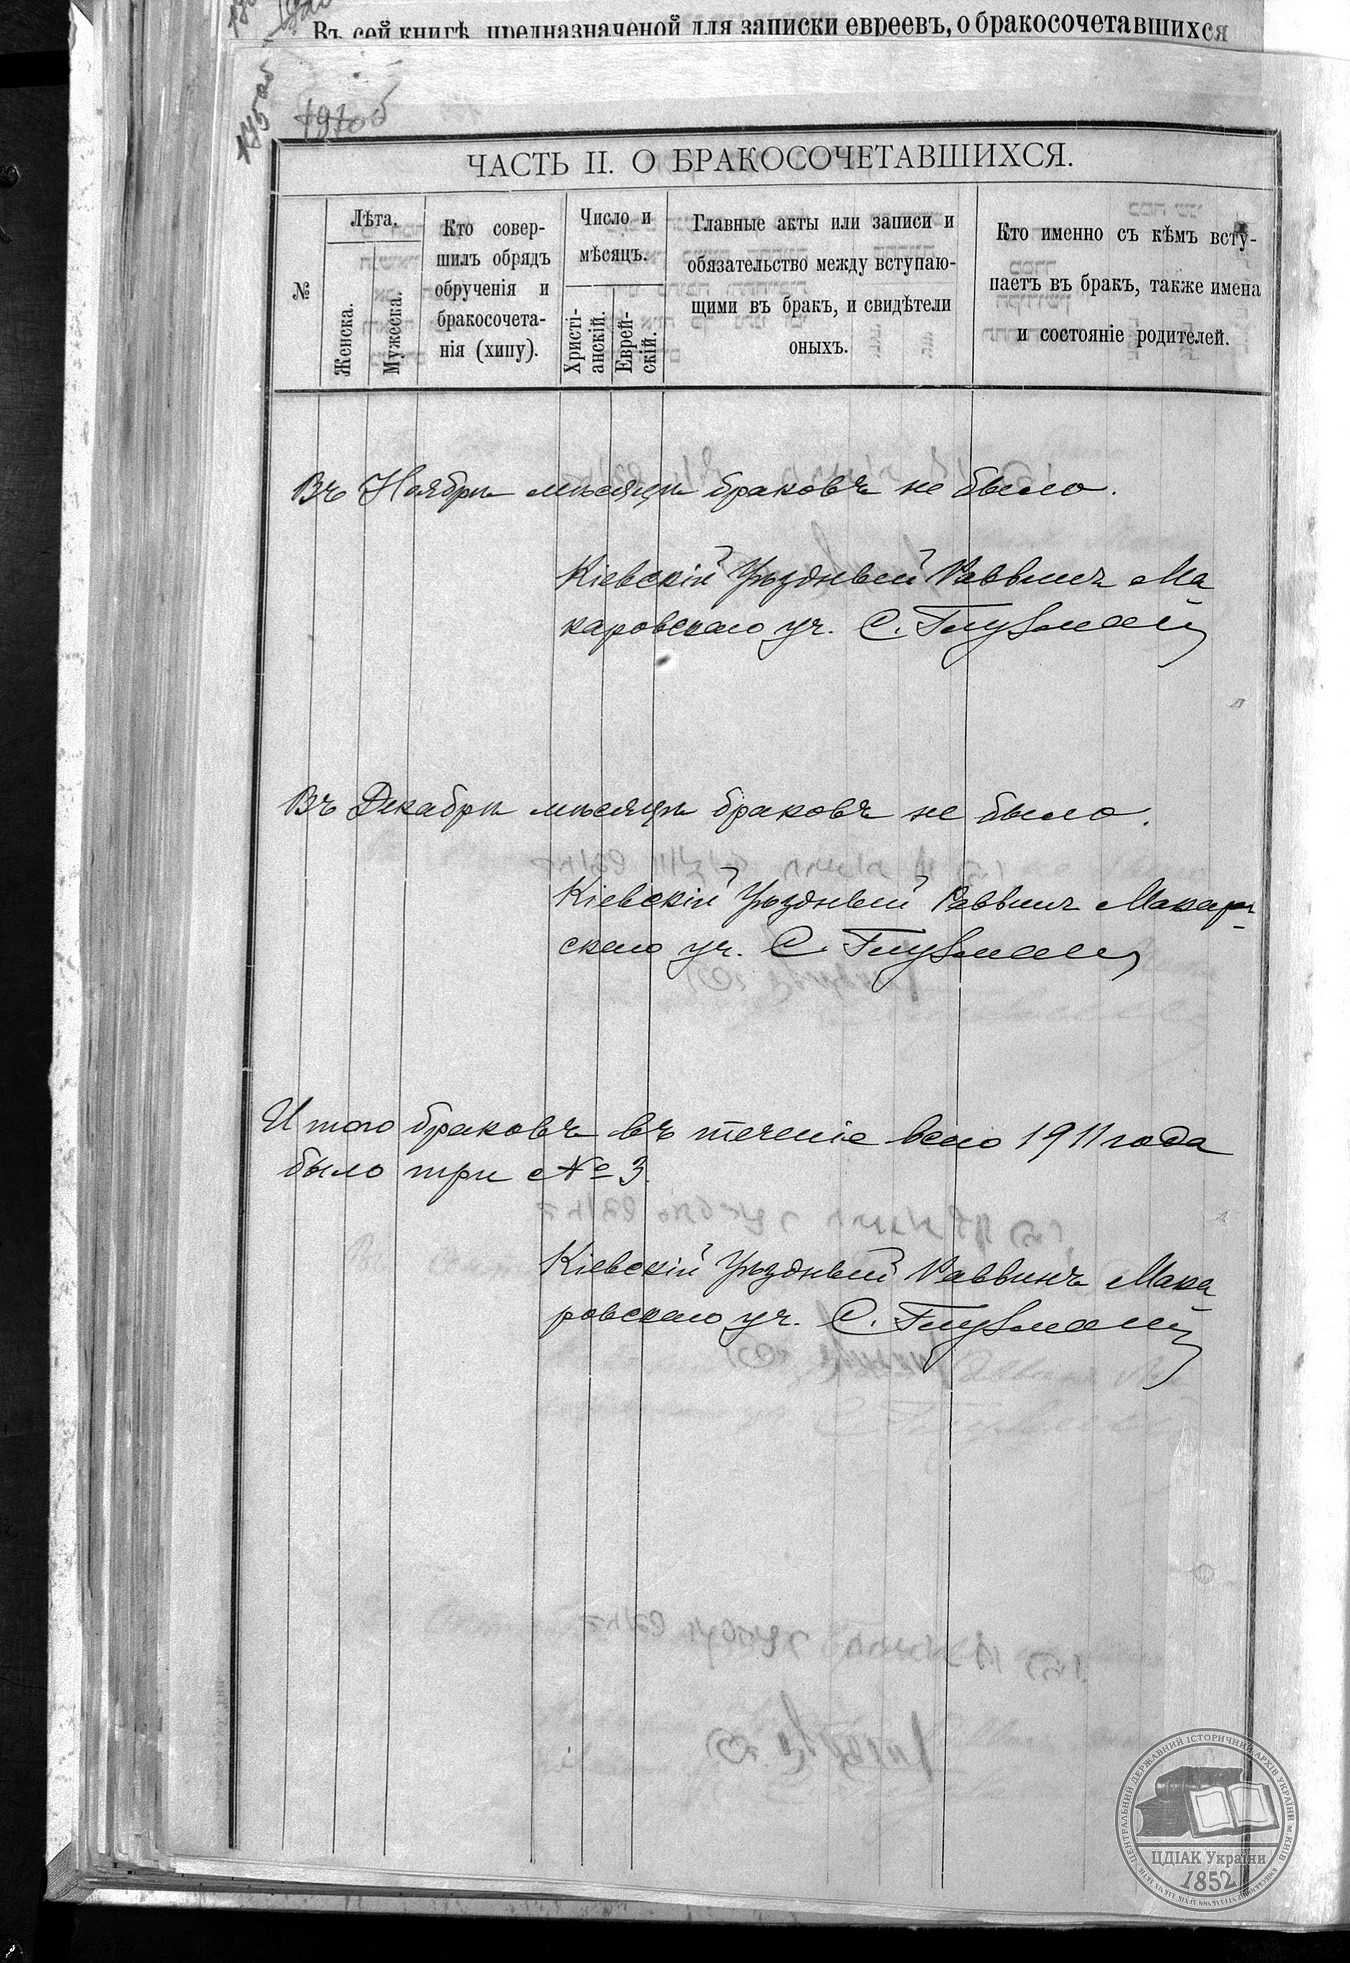 Въ сей книгѣ, предназначеной для записки евреевъ, о бракосочетавшихся
ЧАСТЬ II. О БРАКОСОЧЕТАВШИХСЯ.
№
Лѣта.
Женска.
Мужеска.
Кто совер-
шилъ обрядъ
обрученія и
бракосочета-
нія (хипу).
Число и
мѣсяцъ.
Христі-
анскій.
Еврей-
скій.
Главные акты или записи и
обязательство между вступаю-
щими въ бракъ, и свидѣтели
оныхъ.
Кто именно съ кѣмъ всту-
паетъ въ бракъ, также имена
и состояніе родителей.
Въ Ноябрѣ мѣсяцѣ браковъ не было.
Кіевскій Уѣздный Раввинъ Ма
каровскаго уч. С. Глузманъ
Въ Декабрѣ мѣсяцѣ браковъ не было.
Кіевскій Уѣздный Раввинъ Макаров-
скаго уч. С. Глузманъ
Итого браковъ въ теченіе всего 1911 года
было три № 3.
Кіевскій Уѣздный Раввинъ Мака
ровскаго уч. С. Глузманъ
ЦЕНТРАЛЬНИЙ ДЕРЖАВНИЙ ІСТОРИЧНИЙ АРХІВ УКРАЇНИ м. КИЇВ
ЦДІАК України
1852